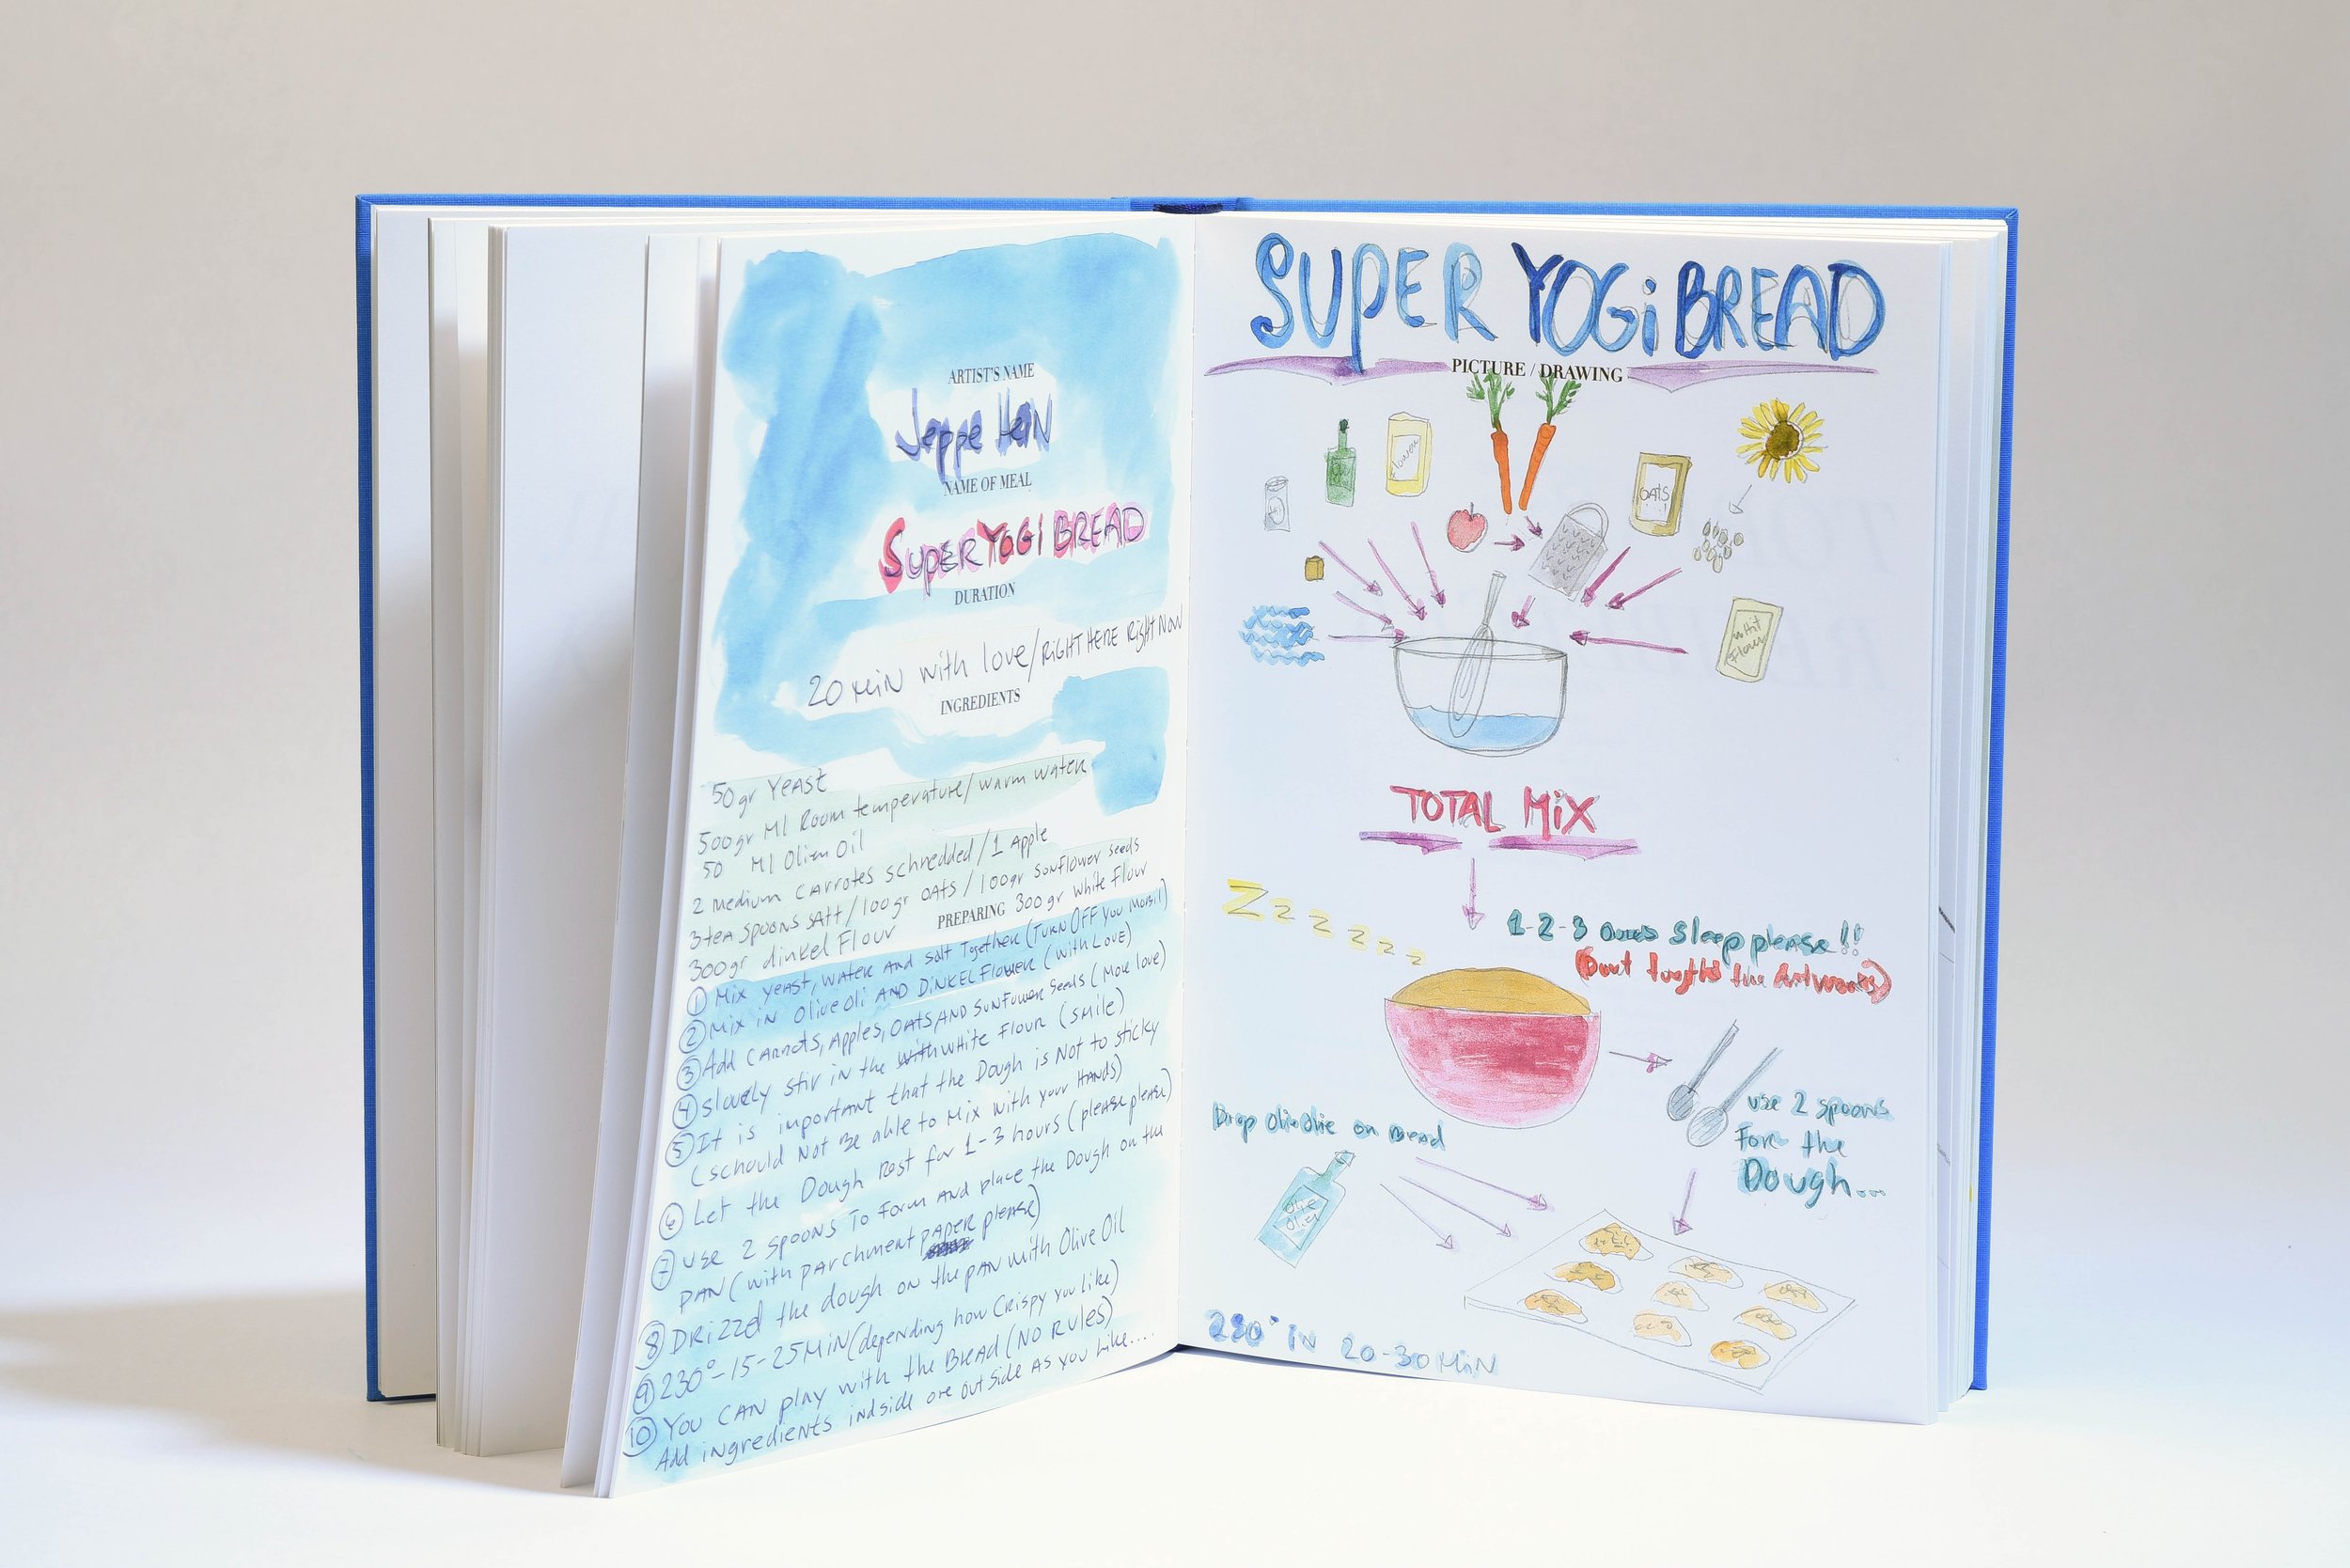 ARTIST'S NAME
Jeppe HeiN
NAME OF MEAL
SUPER YOGI BREAD
DURATION
20 MiN with love/RiGHT HERE RiGHT NOW
INGREDIENTS
50gr YEAST
500gr Ml Room temperature/warm water
50 Ml Oliven Oil
2 medium CArrotes schredded/1 Apple
3 tea spoons sAlt/100gr OAts/100gr Sunflower seeds
300gr dinkel Flour
300 gr white Flour
PREPARING
① Mix yeast, water And salt Together (TURN OFF you Mobil)
② Mix iN Olive Oli AND DiNKEL Flower (with Love)
③ Add CArrots, Apples, OAts AND SunFlower Seeds (More love)
④ slowly stir in the with white Flour (SMile)
⑤ It is important that the Dough is Not to sticky
(schould Not Be able to Mix with your HANDS)
⑥ Let the Dough Rest for 1-3 hours (please please)
⑦ use 2 spoons To Form AND place the Dough on the
PAN (with parchment PAPER please)
⑧ DRizzel the dough on the pAN with Olive Oil
⑨ 230°-15-25MiN (depending how Crispy you like)
⑩ YOU CAN play with the BREAD (NO RULES)
Add ingredients indside ore outside AS you like....
SUPER YOGi BREAD
PICTURE / DRAWING
OATS
Flower
whit
Flower
TOTAL MiX
Z z z z z z z
1-2-3 ours Sleep please!!
use 2 spoons
Fore the
Dough...
Drop Oliolie on Bread
Olie
230° iN 20-30 MiN